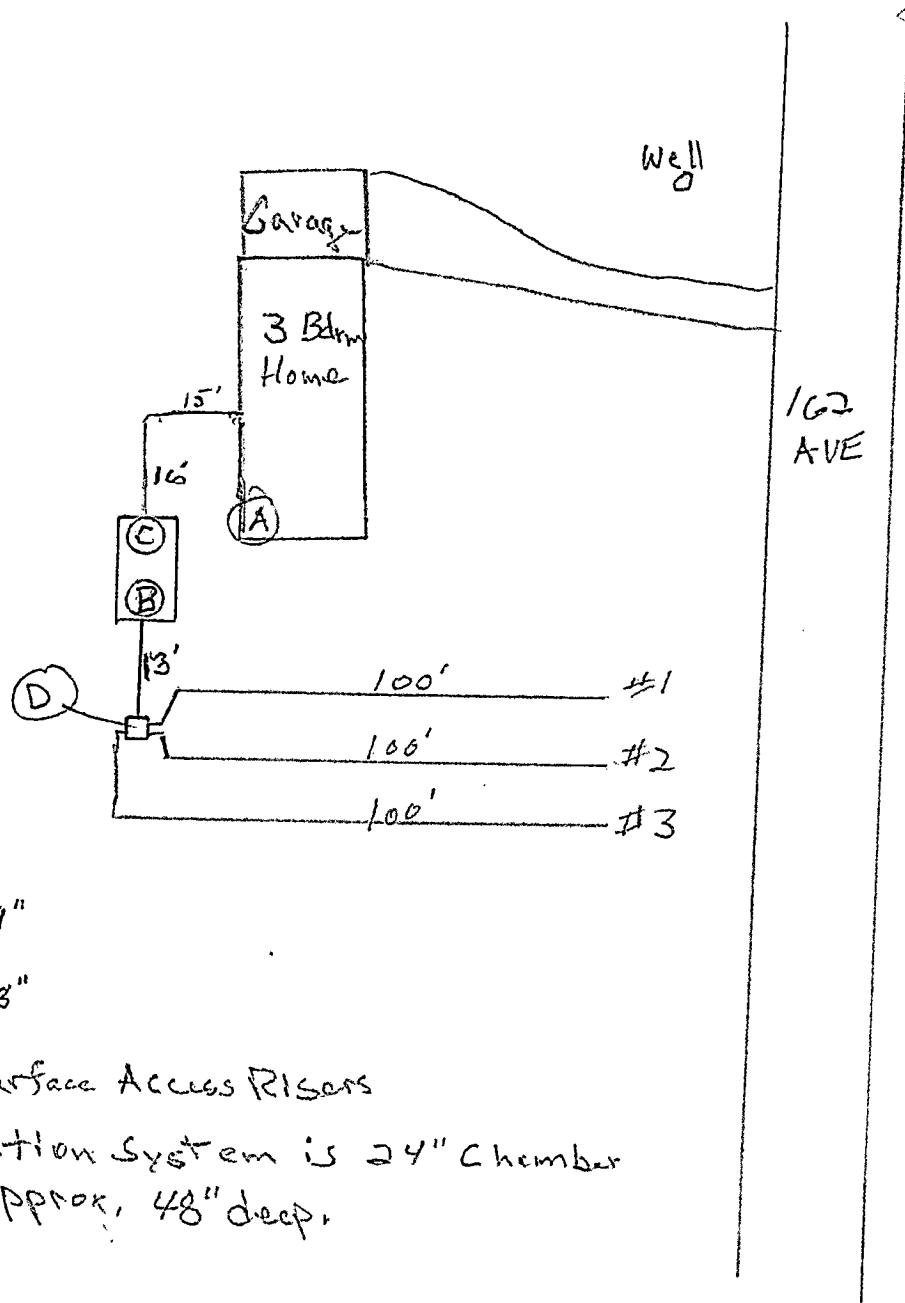 Well
Garage
3 Bdrm
Home
15'
16'
A
C
B
13'
D
100' #1
100' #2
100' #3
162
AVE
9"
8"
urface Access Risers
tion System is 24" Chamber
pprox. 48" deep.